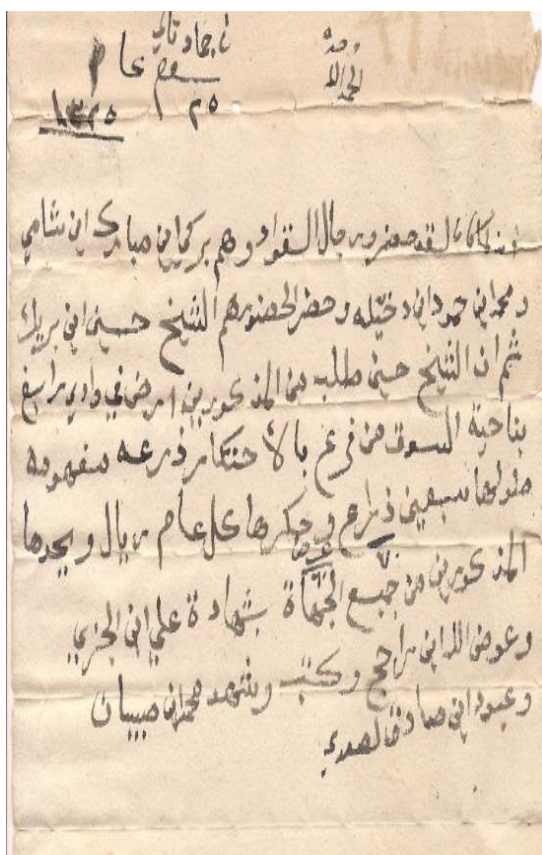 الحمد لله وحده
في جماد تاني
٢٥ عام
١٣٢٥
حضروا رجال القواد وهم بركة ابن مبارك ابن شامي
ومحمد ابن حمود ابن دخيله وحضر الحضورهم الشيخ حسين ابن بريك
ثم ان الشيخ حسين طلب من المذكورين ارض في وادي رابغ
بناحية السوق من فرغ بالاحتكار ذرعه مفهومه
طولها سبعين ذراع وحكرها كل عام ريال ويحدها
عرضها
المذكورين من جميع الجهاة بشهادة علي ابن الجزي
وعوض الله ابن راجح وكتب وشهد محمد ابن صبيان
وعبود ابن صادق